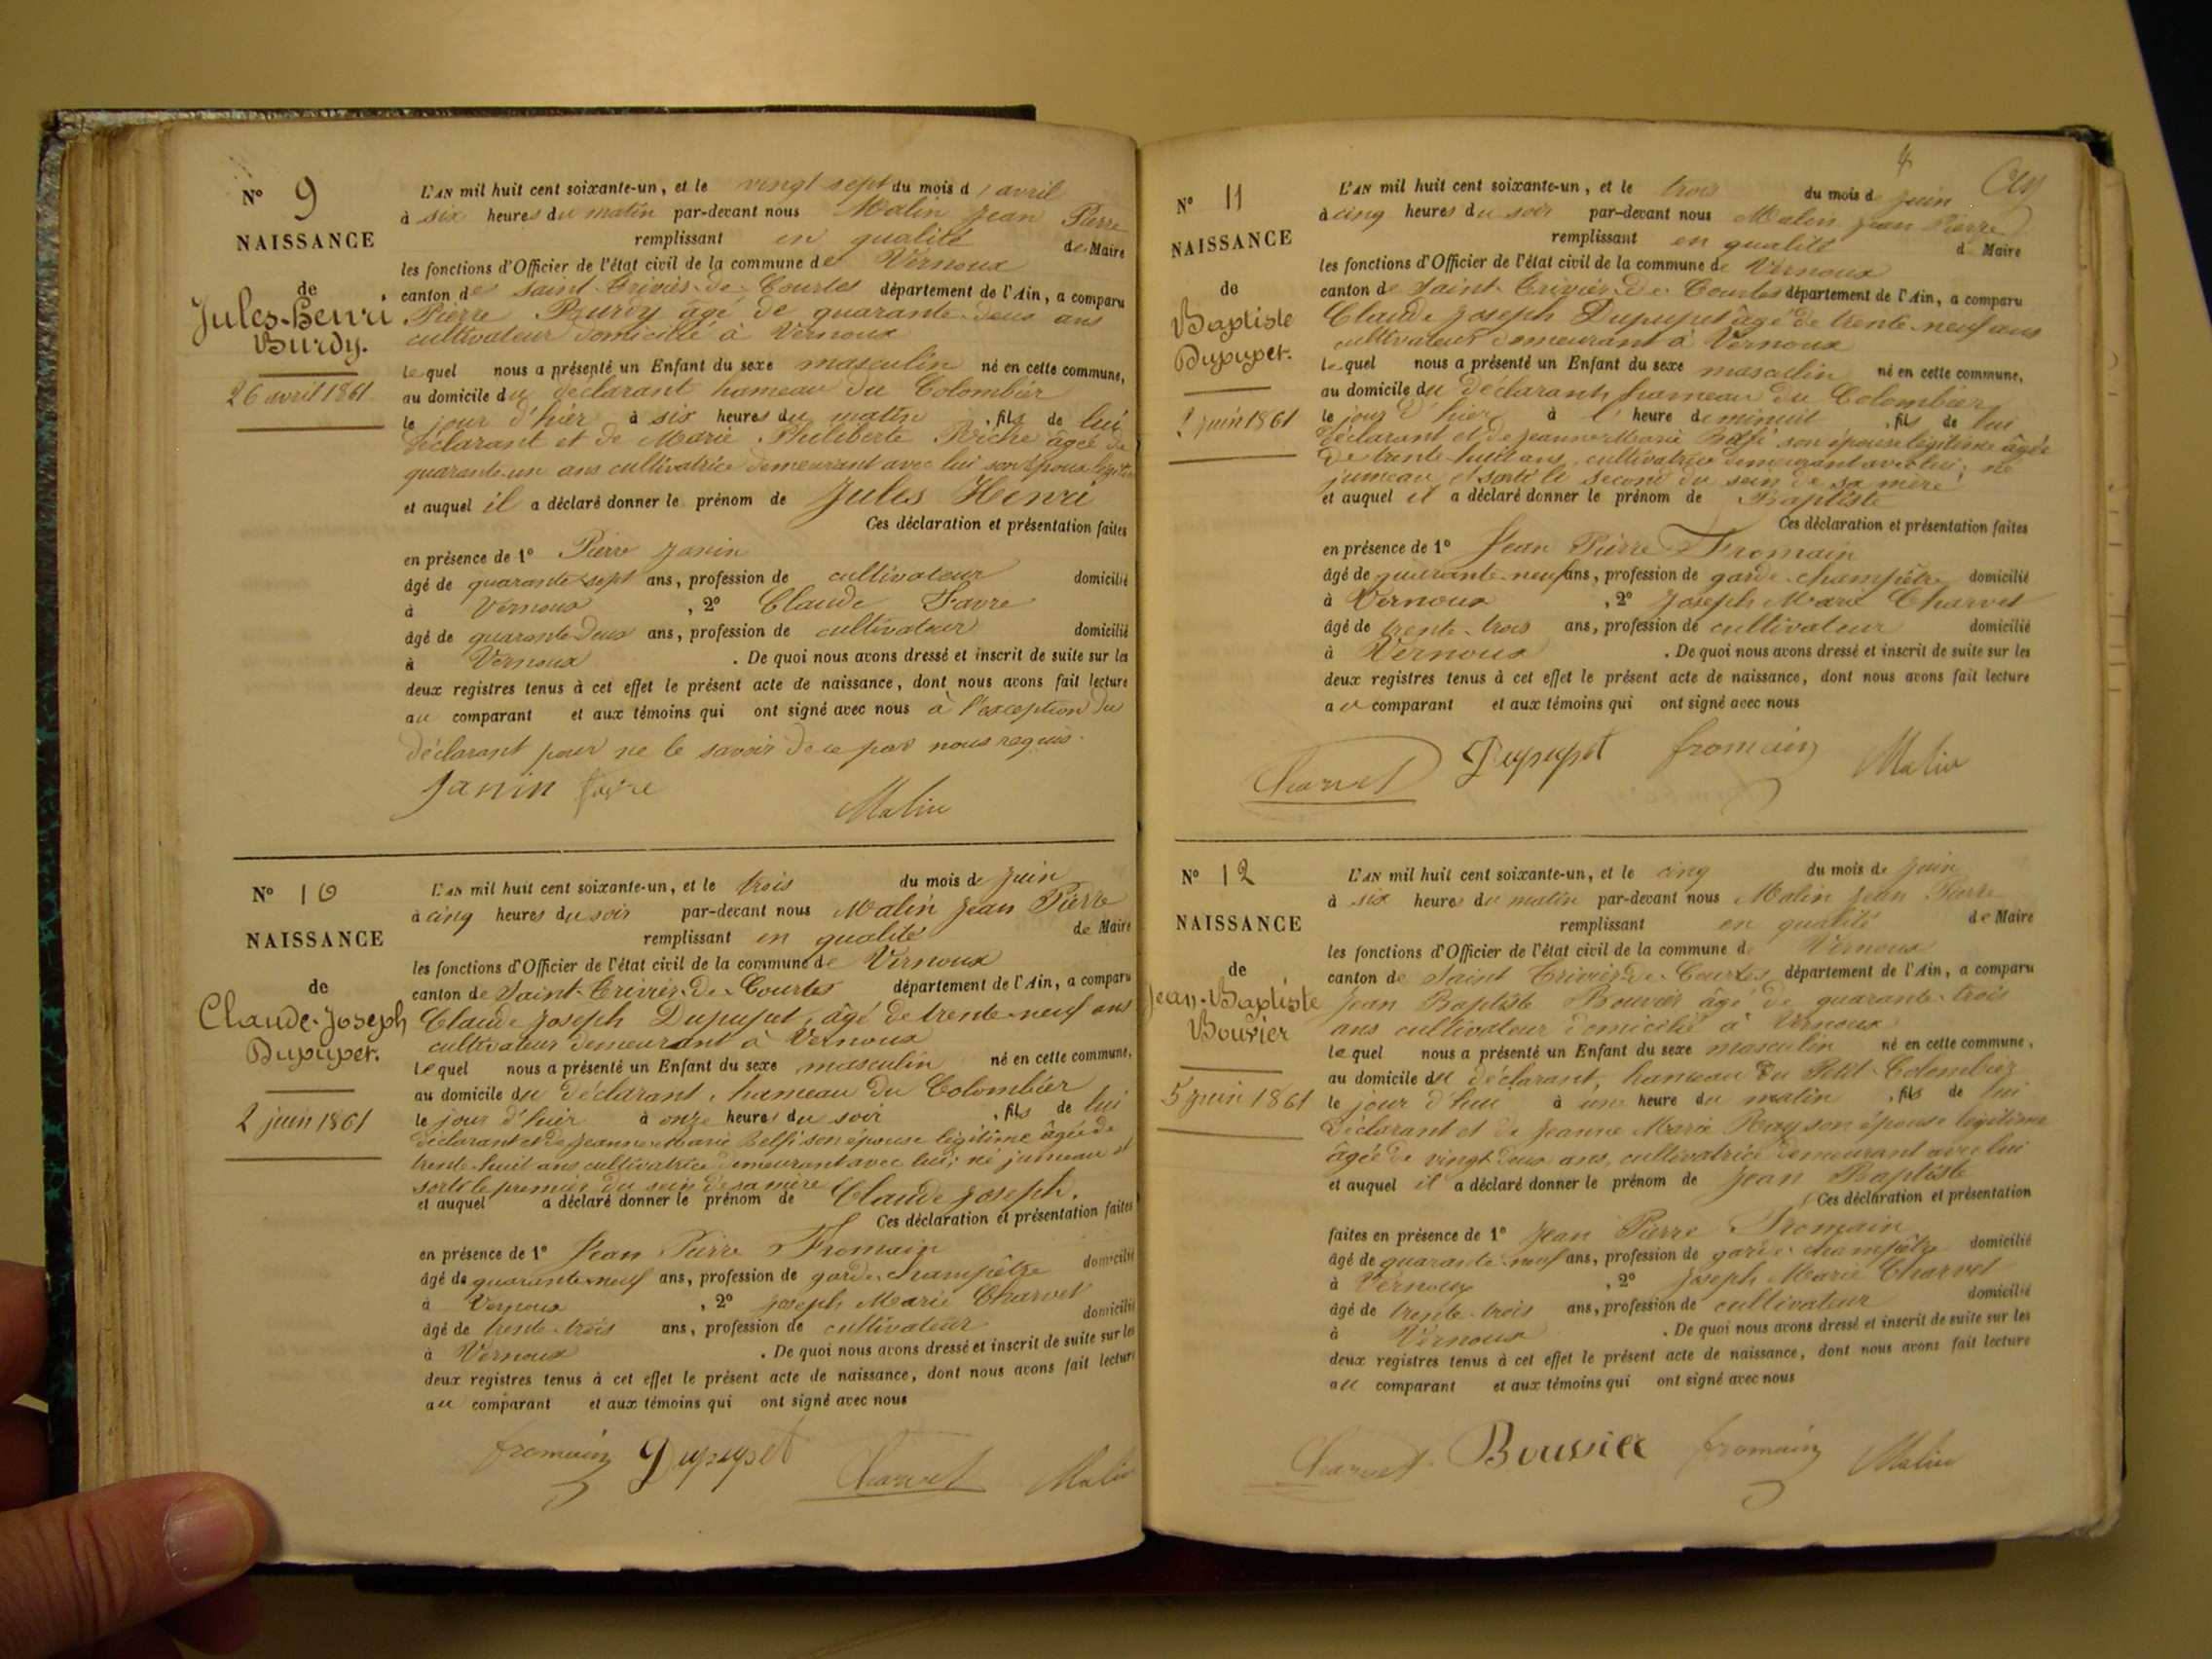 N° 9
NAISSANCE
de
Jules-Henri
Burdy.
26 avril 1861
L'AN mil huit cent soixante-un, et le vingt sept du mois d'avril
à six heures du matin par-devant nous Malin Jean Pierre
remplissant en qualité de Maire
les fonctions d'Officier de l'état civil de la commune de Vernoux
canton de Saint-Trivier-de-Courtes département de l'Ain, a comparu
Pierre Burdy âgé de quarante-deux ans
cultivateur domicilié à Vernoux
lequel nous a présenté un Enfant du sexe masculin né en cette commune,
au domicile du déclarant hameau du Colombier
le jour d'hier à six heures du matin, fils de lui
déclarant et de Marie Philiberte Riche âgée de
quarante-un ans cultivatrice demeurant avec lui son épouse légitime
et auquel il a déclaré donner le prénom de Jules Henri
Ces déclaration et présentation faites
en présence de 1° Pierre Janin
âgé de quarante-sept ans, profession de cultivateur domicilié
à Vernoux, 2° Claude Favre
âgé de quarante-deux ans, profession de cultivateur domicilié
à Vernoux. De quoi nous avons dressé et inscrit de suite sur les
deux registres tenus à cet effet le présent acte de naissance, dont nous avons fait lecture
au comparant et aux témoins qui ont signé avec nous à l'exception du
déclarant pour ne le savoir de ce par nous requis.
Janin favre
Malin
N° 10
NAISSANCE
de
Claude-Joseph
Dupupet.
2 juin 1861
L'AN mil huit cent soixante-un, et le trois du mois de juin
à cinq heures du soir par-devant nous Malin Jean Pierre
remplissant en qualité de Maire
les fonctions d'Officier de l'état civil de la commune de Vernoux
canton de Saint-Trivier-De-Courtes département de l'Ain, a comparu
Claude Joseph Dupupet, âgé de trente-neuf ans
cultivateur demeurant à Vernoux
lequel nous a présenté un Enfant du sexe masculin né en cette commune,
au domicile du déclarant, hameau du Colombier
le jour d'hier à onze heures du soir, fils de lui
déclarant et de Jeanne-Marie son épouse légitime âgée de
trente-huit ans cultivatrice demeurant avec lui; né jumeau et
sorti le premier du sein de sa mère
et auquel a déclaré donner le prénom de Claude Joseph.
Ces déclaration et présentation faites
en présence de 1° Jean Pierre Fromain
âgé de quarante-neuf ans, profession de garde-champêtre domicilié
à Vernoux, 2° Joseph Marie Charvet
âgé de trente-trois ans, profession de cultivateur domicilié
à Vernoux. De quoi nous avons dressé et inscrit de suite sur les
deux registres tenus à cet effet le présent acte de naissance, dont nous avons fait lecture
au comparant et aux témoins qui ont signé avec nous
fromain Dupupet Charvet Malin
N° 11
NAISSANCE
de
Baptiste
Dupupet.
2 juin 1861
L'AN mil huit cent soixante-un, et le trois du mois de juin
à cinq heures du soir par-devant nous Malin Jean Pierre
remplissant en qualité d Maire
les fonctions d'Officier de l'état civil de la commune de Vernoux
canton de Saint-Trivier-De-Courtes département de l'Ain, a comparu
Claude Joseph Dupupet âgé de trente-neuf ans
cultivateur demeurant à Vernoux
lequel nous a présenté un Enfant du sexe masculin né en cette commune,
au domicile du déclarant, hameau du Colombier
le jour d'hier à l'heure de minuit, fils de lui
déclarant et de Jeanne-Marie son épouse légitime âgée
de trente-huit ans, cultivatrice demeurant avec lui; né
jumeau et sorti le second du sein de sa mère
et auquel il a déclaré donner le prénom de Baptiste
Ces déclaration et présentation faites
en présence de 1° Jean Pierre Fromain
âgé de quarante-neuf ans, profession de garde-champêtre domicilié
à Vernoux, 2° Joseph Marie Charvet
âgé de trente-trois ans, profession de cultivateur domicilié
à Vernoux. De quoi nous avons dressé et inscrit de suite sur les
deux registres tenus à cet effet le présent acte de naissance, dont nous avons fait lecture
au comparant et aux témoins qui ont signé avec nous
Charvet Dupupet fromain Malin
N° 12
NAISSANCE
de
Jean-Baptiste
Bouvier
5 juin 1861
L'AN mil huit cent soixante-un, et le cinq du mois de juin
à six heures du matin par-devant nous Malin Jean Pierre
remplissant en qualité de Maire
les fonctions d'Officier de l'état civil de la commune d Vernoux
canton de Saint Trivier-De-Courtes, département de l'Ain, a comparu
Jean Baptiste Bouvier âgé de quarante-trois
ans cultivateur domicilié à Vernoux
lequel nous a présenté un Enfant du sexe masculin né en cette commune,
au domicile du déclarant, hameau du Petit-Colombier
le jour d'hui à une heure du matin, fils de lui
déclarant et de Jeanne Marie Ray son épouse légitime
âgée de vingt-deux ans, cultivatrice demeurant avec lui
et auquel il a déclaré donner le prénom de Jean Baptiste
Ces déclaration et présentation
faites en présence de 1° Jean Pierre Fromain
âgé de quarante-neuf ans, profession de garde-champêtre domicilié
à Vernoux, 2° Joseph Marie Charvet
âgé de trente-trois ans, profession de cultivateur domicilié
à Vernoux. De quoi nous avons dressé et inscrit de suite sur les
deux registres tenus à cet effet le présent acte de naissance, dont nous avons fait lecture
au comparant et aux témoins qui ont signé avec nous
Charvet Bouvier fromain Malin